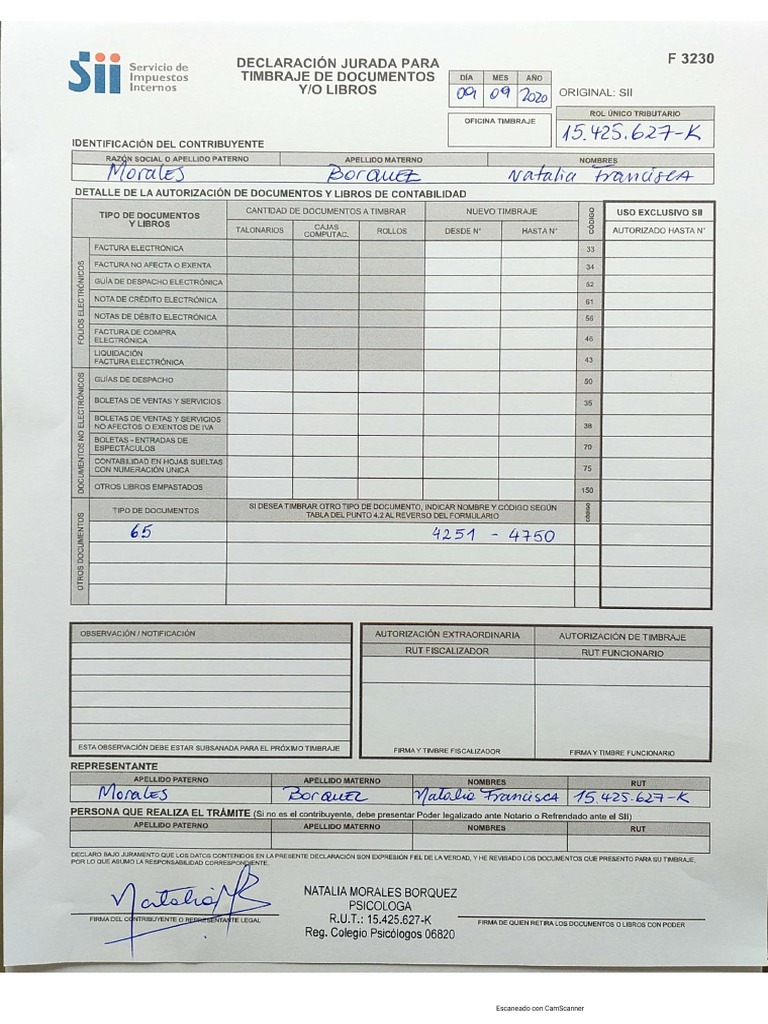 Sii Servicio de
Impuestos
Internos
DECLARACIÓN JURADA PARA
TIMBRAJE DE DOCUMENTOS
Y/O LIBROS
F 3230
DÍA MES AÑO
09 09 2020
ORIGINAL: SII
OFICINA TIMBRAJE
ROL ÚNICO TRIBUTARIO
15.425.627-K
IDENTIFICACIÓN DEL CONTRIBUYENTE
RAZÓN SOCIAL O APELLIDO PATERNO APELLIDO MATERNO NOMBRES
Morales Borquez Natalia Francisca
DETALLE DE LA AUTORIZACIÓN DE DOCUMENTOS Y LIBROS DE CONTABILIDAD
TIPO DE DOCUMENTOS
Y LIBROS
CANTIDAD DE DOCUMENTOS A TIMBRAR NUEVO TIMBRAJE CÓDIGO USO EXCLUSIVO SII
TALONARIOS CAJAS
COMPUTAC. ROLLOS DESDE N° HASTA N° AUTORIZADO HASTA N°
FOLIOS ELECTRÓNICOS
FACTURA ELECTRÓNICA 33
FACTURA NO AFECTA O EXENTA 34
GUÍA DE DESPACHO ELECTRÓNICA 52
NOTA DE CRÉDITO ELECTRÓNICA 61
NOTAS DE DÉBITO ELECTRÓNICA 56
FACTURA DE COMPRA
ELECTRÓNICA 46
LIQUIDACIÓN
FACTURA ELECTRÓNICA 43
DOCUMENTOS NO ELECTRÓNICOS
GUÍAS DE DESPACHO 50
BOLETAS DE VENTAS Y SERVICIOS 35
BOLETAS DE VENTAS Y SERVICIOS
NO AFECTOS O EXENTOS DE IVA 38
BOLETAS - ENTRADAS DE
ESPECTÁCULOS 70
CONTABILIDAD EN HOJAS SUELTAS
CON NUMERACIÓN ÚNICA 75
OTROS LIBROS EMPASTADOS 150
OTROS DOCUMENTOS
TIPO DE DOCUMENTOS SI DESEA TIMBRAR OTRO TIPO DE DOCUMENTO, INDICAR NOMBRE Y CÓDIGO SEGÚN
TABLA DEL PUNTO 4.2 AL REVERSO DEL FORMULARIO CÓDIGO
65 4251 - 4750
OBSERVACIÓN / NOTIFICACIÓN
ESTA OBSERVACIÓN DEBE ESTAR SUBSANADA PARA EL PRÓXIMO TIMBRAJE
AUTORIZACIÓN EXTRAORDINARIA AUTORIZACIÓN DE TIMBRAJE
RUT FISCALIZADOR RUT FUNCIONARIO
FIRMA Y TIMBRE FISCALIZADOR FIRMA Y TIMBRE FUNCIONARIO
REPRESENTANTE
APELLIDO PATERNO APELLIDO MATERNO NOMBRES RUT
Morales Borquez Natalia Francisca 15.425.627-K
PERSONA QUE REALIZA EL TRÁMITE (Si no es el contribuyente, debe presentar Poder legalizado ante Notario o Refrendado ante el SII)
APELLIDO PATERNO APELLIDO MATERNO NOMBRES RUT
DECLARO BAJO JURAMENTO QUE LOS DATOS CONTENIDOS EN LA PRESENTE DECLARACIÓN SON EXPRESIÓN FIEL DE LA VERDAD, Y HE REVISADO LOS DOCUMENTOS QUE PRESENTO PARA SU TIMBRAJE,
POR LO QUE ASUMO LA RESPONSABILIDAD CORRESPONDIENTE.
Natalia MB
FIRMA DEL CONTRIBUYENTE O REPRESENTANTE LEGAL
NATALIA MORALES BORQUEZ
PSICOLOGA
R.U.T.: 15.425.627-K
Reg. Colegio Psicólogos 06820
FIRMA DE QUIEN RETIRA LOS DOCUMENTOS O LIBROS CON PODER
Escaneado con CamScanner